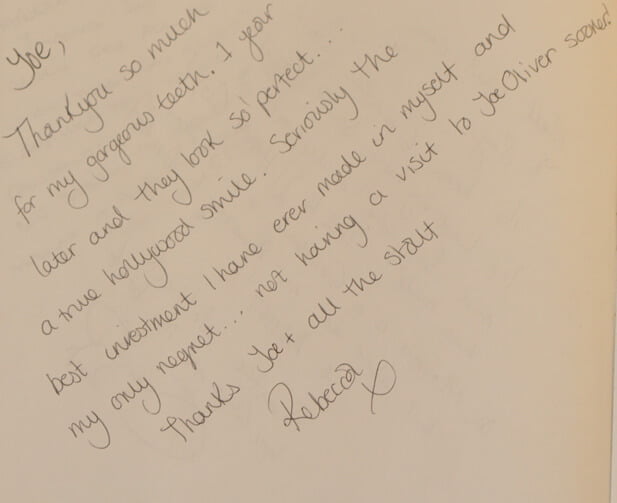 Joe,
Thankyou so much
for my gorgeous teeth. 1 year
later and they look so perfect...
a true hollywood smile. Seriously the
best investment I have ever made in myself and
my only regret... not having a visit to Joe Oliver sooner!
Thanks Joe + all the staff
Rebecca x